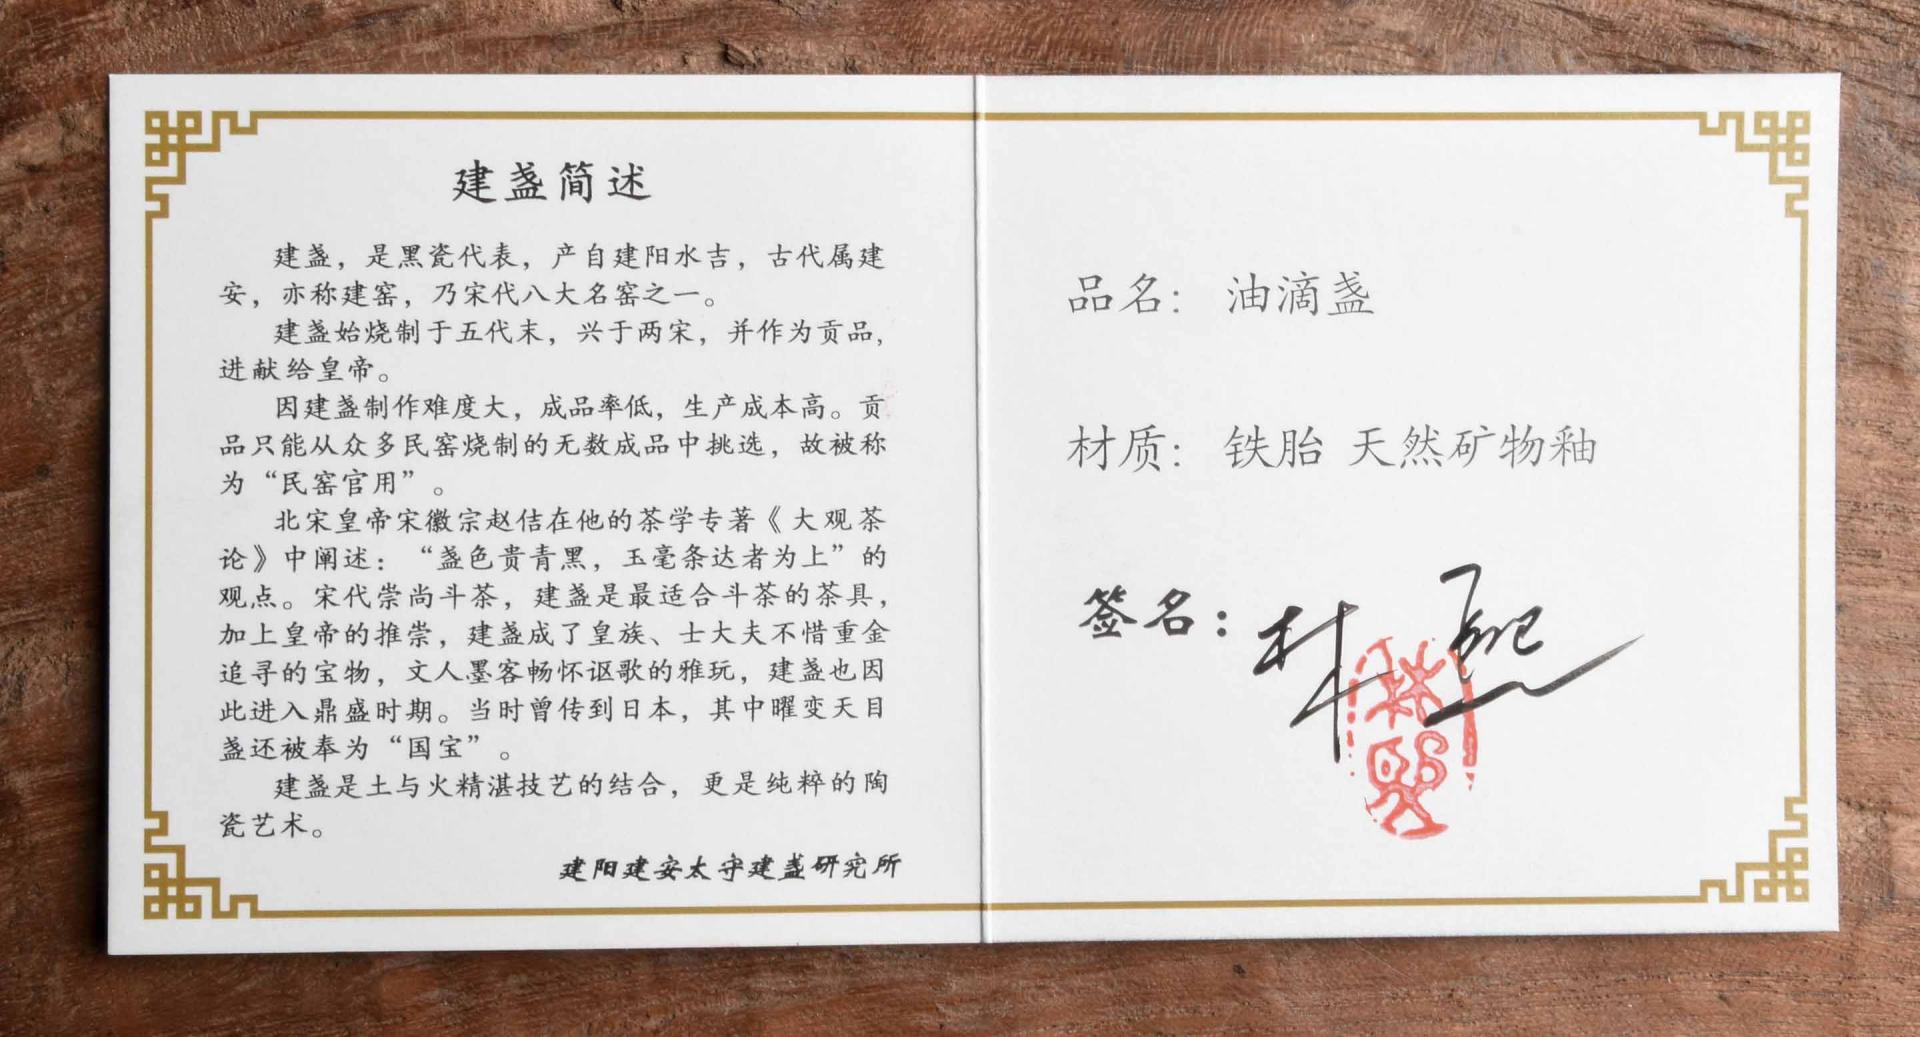 建盏简述
建盏，是黑瓷代表，产自建阳水吉，古代属建
安，亦称建窑，乃宋代八大名窑之一。
建盏始烧制于五代末，兴于两宋，并作为贡品，
进献给皇帝。
因建盏制作难度大，成品率低，生产成本高。贡
品只能从众多民窑烧制的无数成品中挑选，故被称
为“民窑官用”。
北宋皇帝宋徽宗赵佶在他的茶学专著《大观茶
论》中阐述：“盏色贵青黑，玉毫条达者为上”的
观点。宋代崇尚斗茶，建盏是最适合斗茶的茶具，
加上皇帝的推崇，建盏成了皇族、士大夫不惜重金
追寻的宝物，文人墨客畅怀讴歌的雅玩，建盏也因
此进入鼎盛时期。当时曾传到日本，其中曜变天目
盏还被奉为“国宝”。
建盏是土与火精湛技艺的结合，更是纯粹的陶
瓷艺术。
建阳建安太守建盏研究所
品名：油滴盏
材质：铁胎 天然矿物釉
签名：林熙